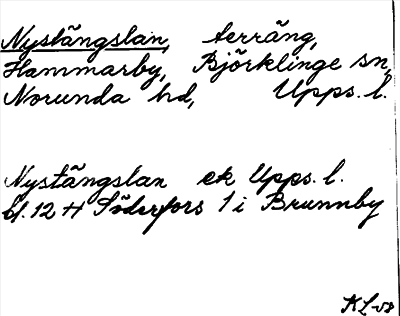 Nystängslan, terräng,
Hammarby, Björklinge sn,
Norunda hd, Upps. l.
Nystängslan ek Upps. l.
bl. 12 H Söderfors 1 i Brunnby
KL-58